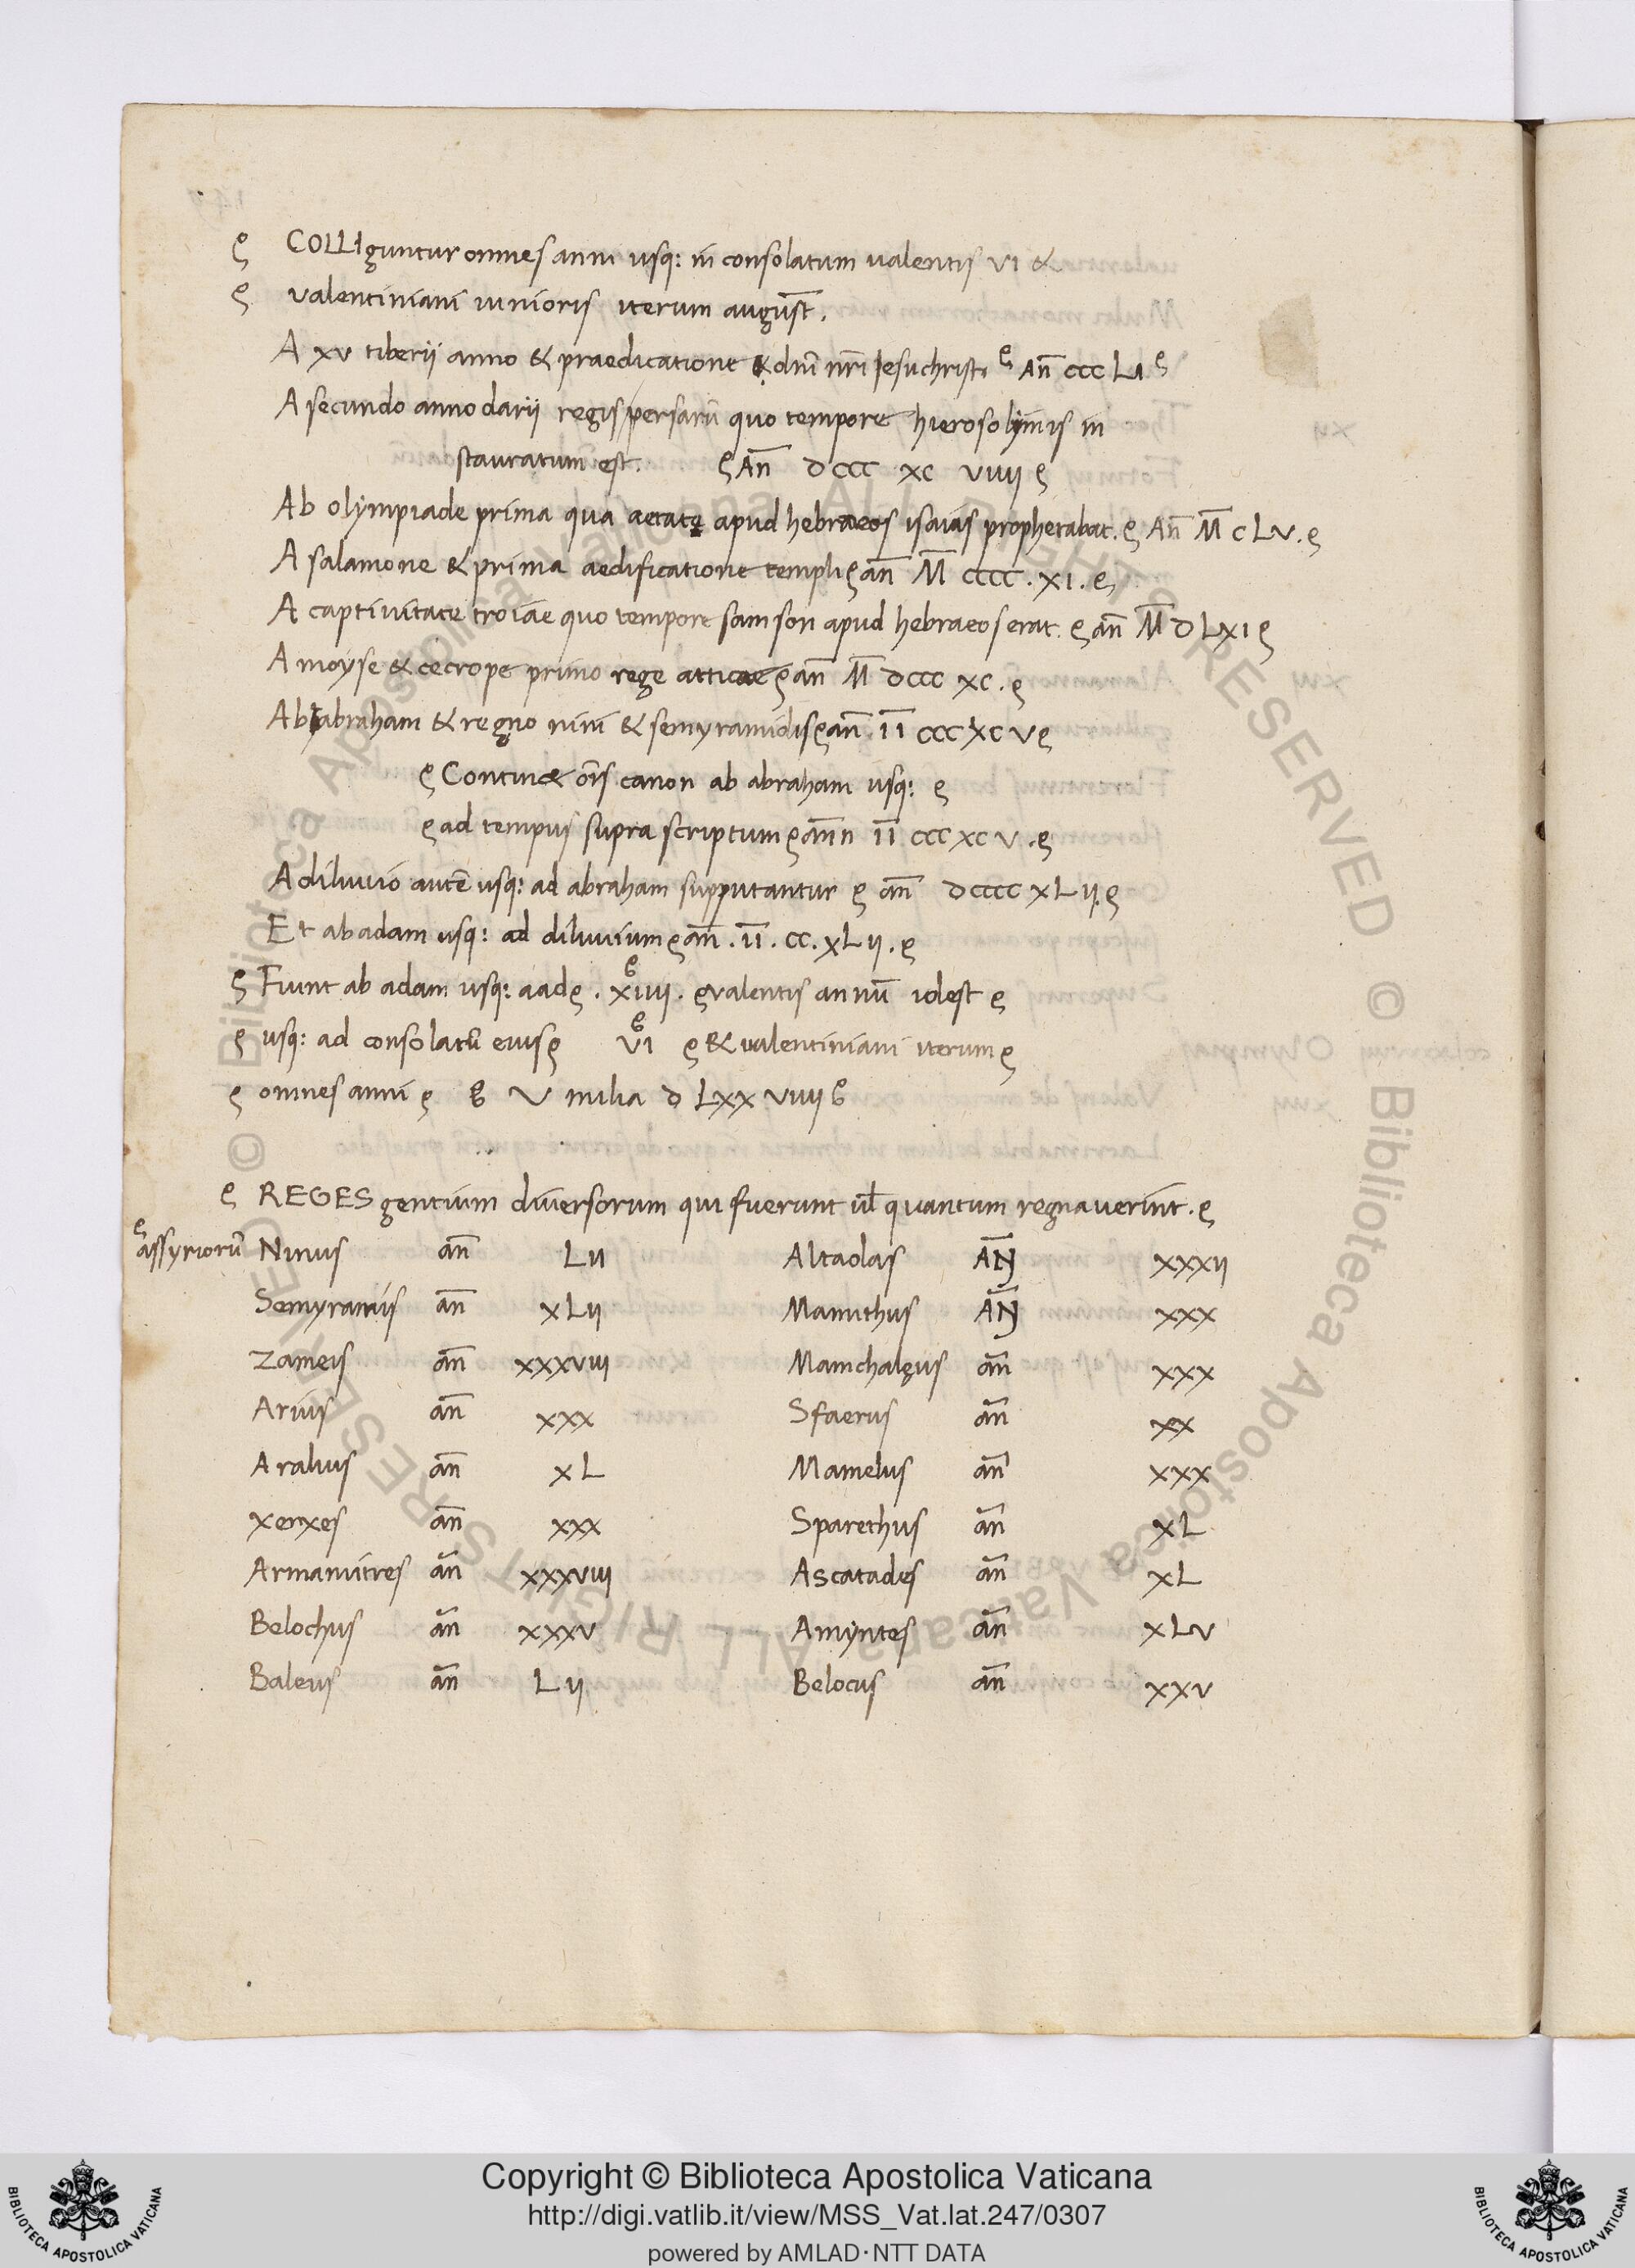 COLLIguntur omnes anni usq: in consolatum ualentis VI &
valentiniani iunioris iterum august̄.
A XV tiberii anno & praedicatione dn̄i nr̄i Iesuchristi An̄ CCC LI
A secundo anno darii regis persarū quo tempore hierosolymis in
stauratum est. An̄ DCCC XC VIIII
Ab olympiade prima qua aetate apud hebraeos isaias prophetabat. An̄ M̄ C LV.
A salamone & prima aedificatione templi an̄ M̄ CCCC. XI.
A captivitate troiae quo tempore samson apud hebraeos erat. an̄ M̄ D LXI
A moyse & cecrope primo rege atticae an̄ M̄ DCCC XC.
Ab abraham & regno nini & semyramidis an̄ II CCC XC V
Contin& om̄s canon ab abraham usq:
ad tempus supra scriptum an̄n II CCC XC V.
A diluvio autē usq: ad abraham supputantur an̄ DCCCC XLII.
Et ab adam usq: ad diluvium an̄. II. CC. XLII.
Fiunt ab adam usq: aad. XIIII. valentis annū idest
usq: ad consolatū eius VI & ualentiniani iterum
omnes anni V milia D LXX VIIII
REGES gentium diversorum qui fuerunt ul̄ quantum regnauerint.
assyriorū Ninus an̄ LII Altadas AN̄ XXXII
Semyramis an̄ XLII Mamithus AN̄ XXX
Zameis an̄ XXXVIII Mamchaleus an̄ XXX
Arius an̄ XXX Sfaerus an̄ XX
Aralius an̄ XL Mamelus an̄ XXX
Xerxes an̄ XXX Sparethus an̄ XL
Armamitres an̄ XXXVIII Ascatades an̄ XL
Belochus an̄ XXXV Amyntes an̄ XLV
Baleus an̄ LII Belocus an̄ XXV
© Biblioteca Apostolica Vaticana ALL RIGHTS RESERVED
© Biblioteca Apostolica Vaticana ALL RIGHTS RESERVED
Copyright © Biblioteca Apostolica Vaticana
http://digi.vatlib.it/view/MSS_Vat.lat.247/0307
powered by AMLAD·NTT DATA
BIBLIOTECA APOSTOLICA VATICANA
BIBLIOTECA APOSTOLICA VATICANA